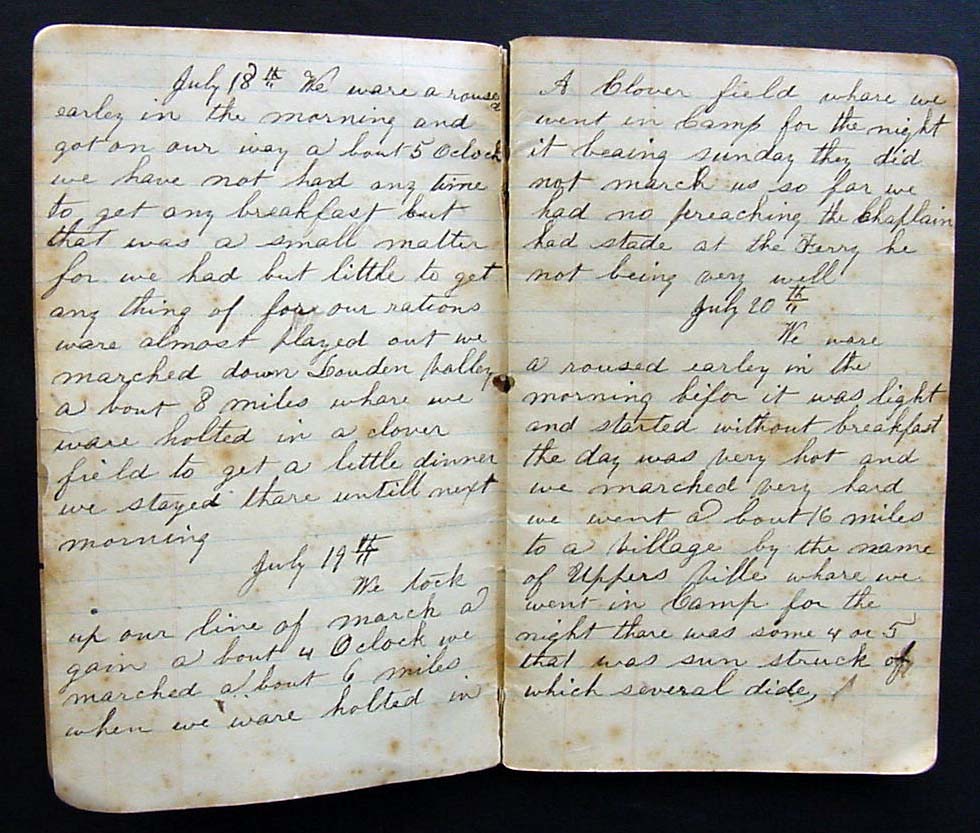 July 18th We ware a rouse
earley in the morning and
got on our way a bout 5 Oclock
we have not had any time
to get any breakfast but
that was a small matter
for we had but little to get
any thing of for our rations
ware almost played out we
marched down Louden Valley
a bout 8 miles whare we
ware holted in a clover
field to get a little dinner
we stayed thare untill next
morning
July 19th
We took
up our line of march a
gain a bout 4 Oclock we
marched a bout 6 miles
when we ware holted in
A Clover field whare we
went in Camp for the night
it beaing sunday they did
not march us so far we
had no preaching the Chaplain
had stade at the Ferry he
not being very well
July 20th
We ware
a roused earley in the
morning bifor it was light
and started without breakfast
the day was very hot and
we marched very hard
we went a bout 16 miles
to a village by the name
of Uppers ville whare we
went in Camp for the
night thare was some 4 or 5
that was sun struck of
which several dide,